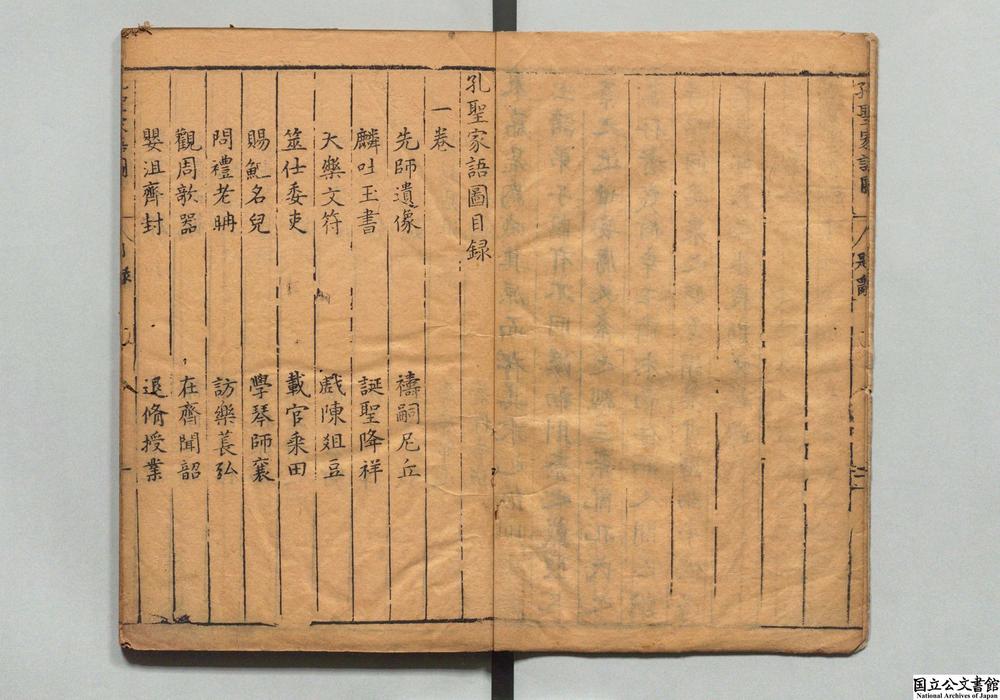 孔聖家語圖
孔聖家語圖目録
一卷
先師遺像 禱嗣尼丘
麟吐玉書 誕聖降祥
大樂文符 戲陳俎豆
筮仕委吏 載官乘田
賜魚名兒 學琴師襄
問禮老聃 訪樂萇弘
觀周欹器 在齊聞韶
嬰沮齊封 退脩授業
国立公文書館
National Archives of Japan